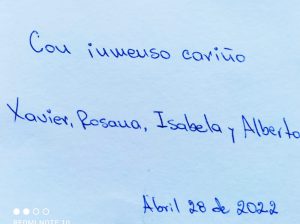 Con inmenso cariño
Xavier, Rosana, Isabela y Alberto
Abril 28 de 2022
REDMI NOTE 10